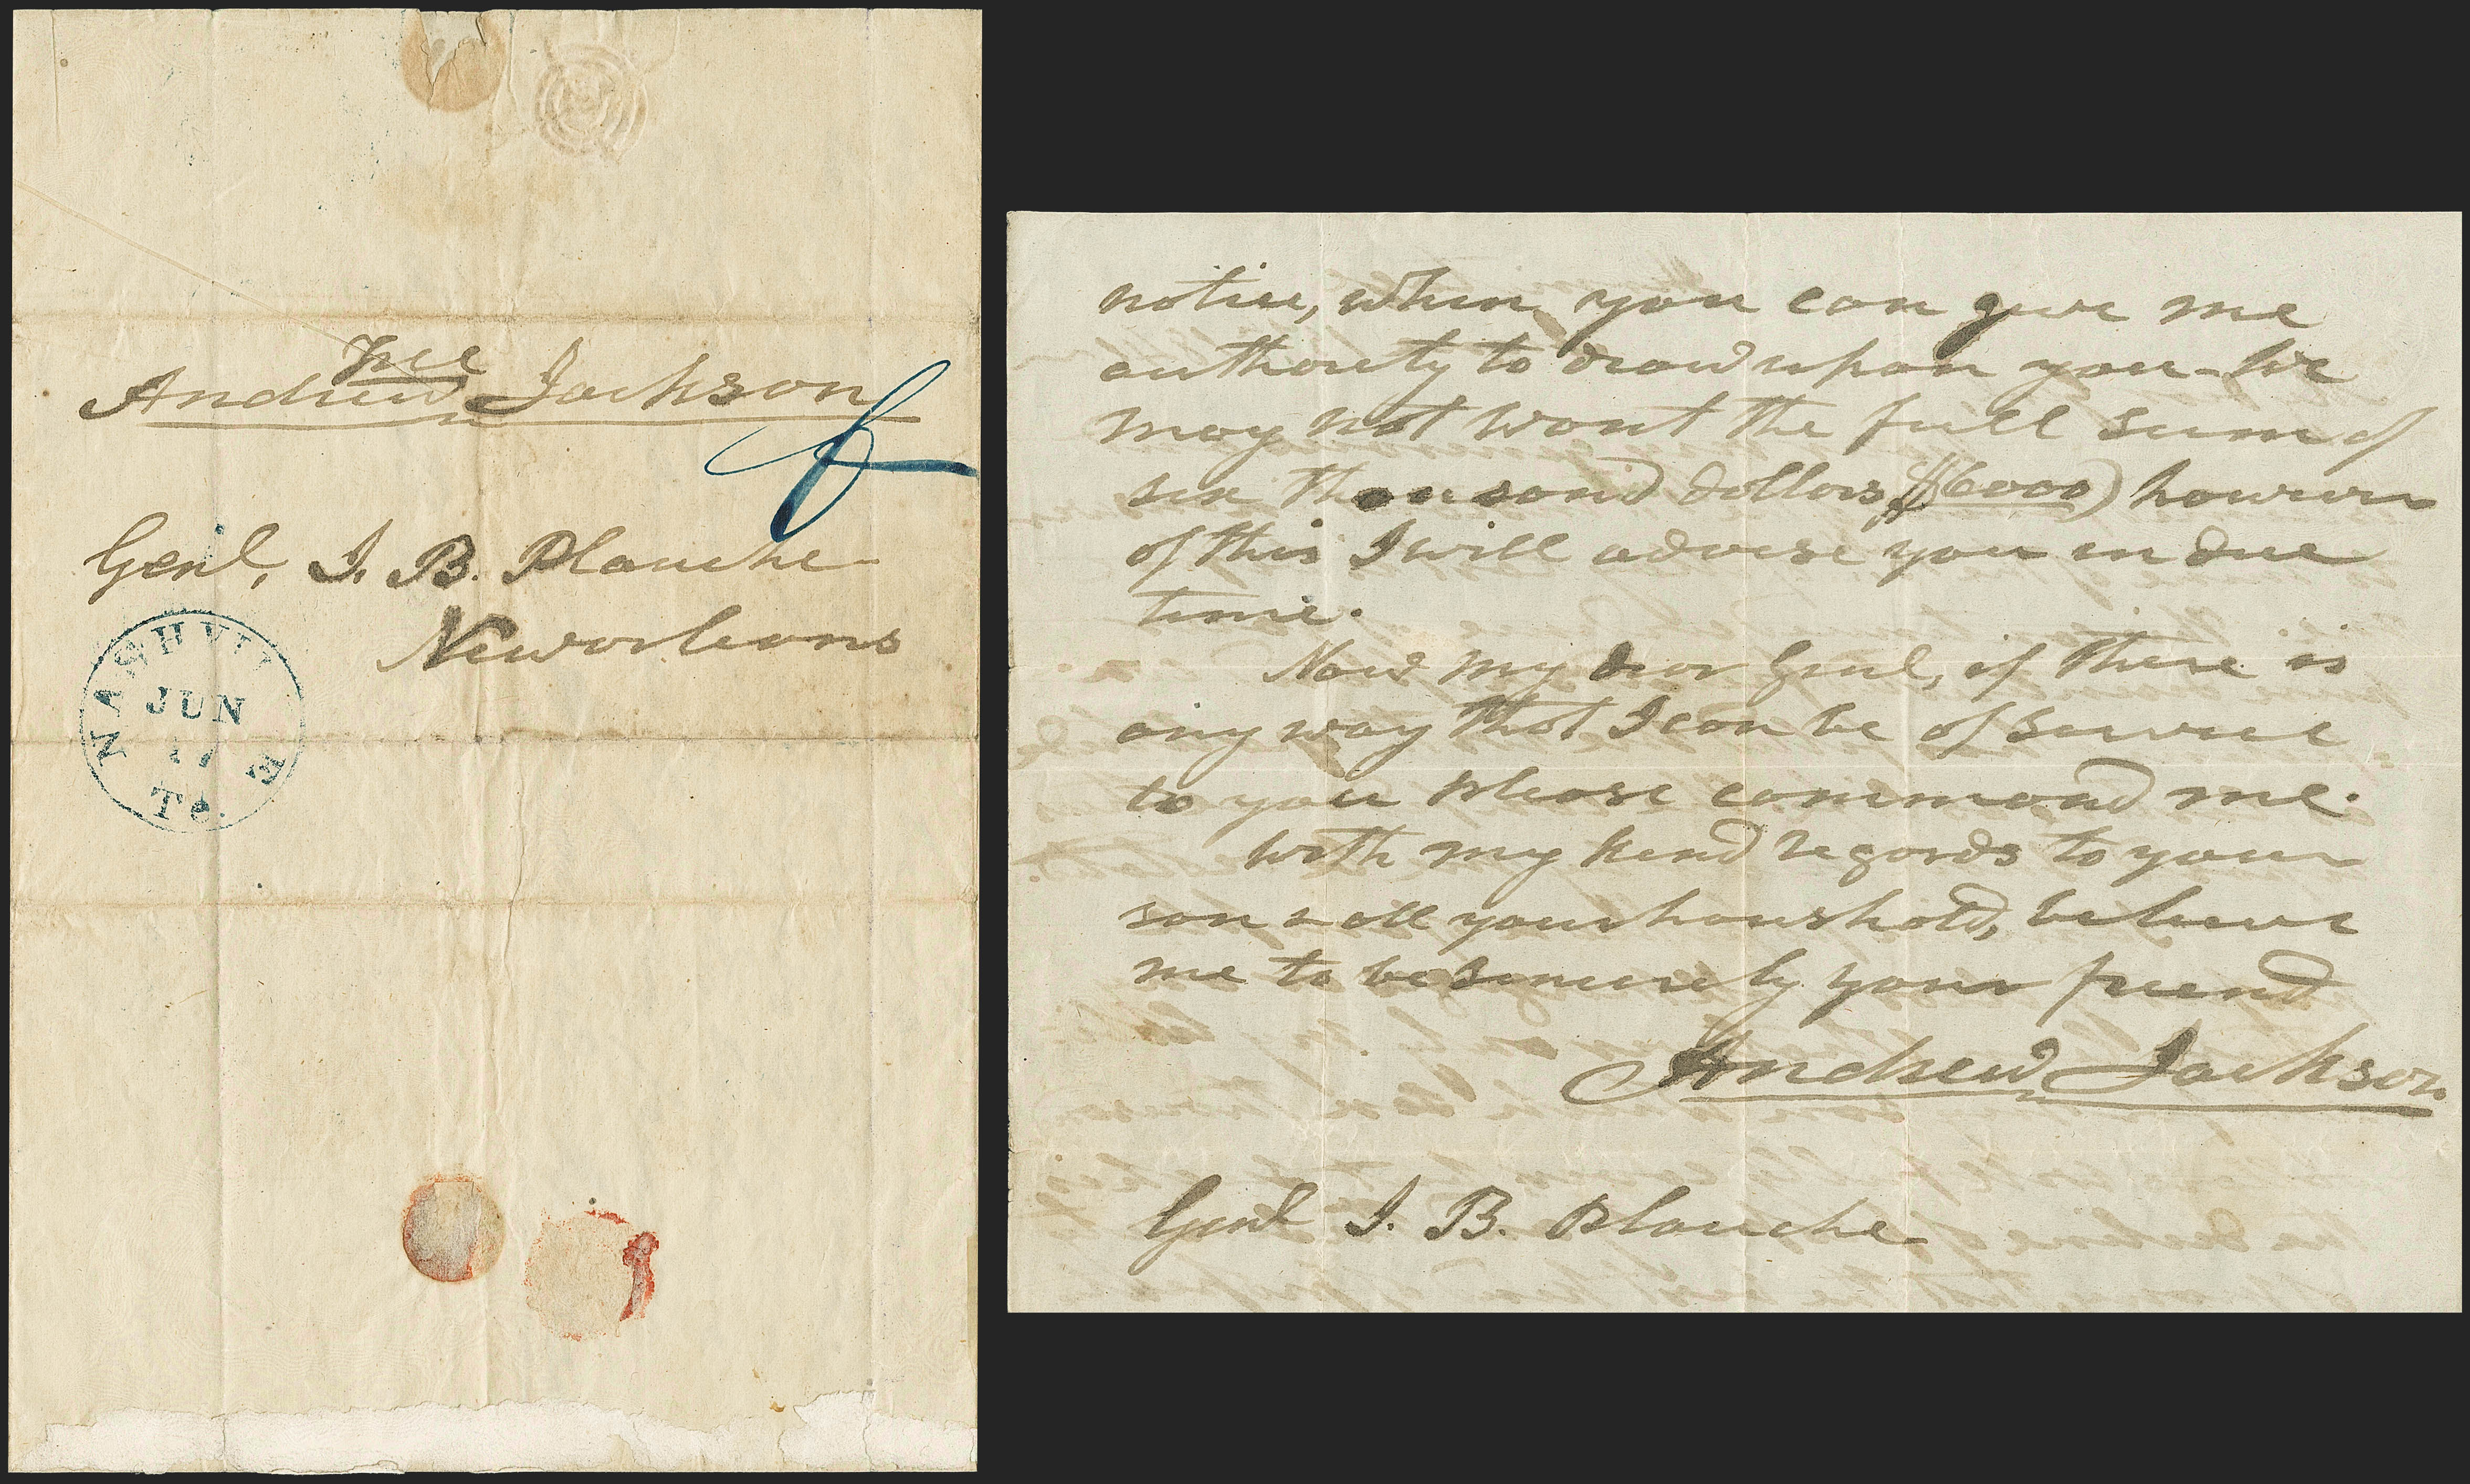 Free
Andrew Jackson
Genl, J. B. Planche
Neworleans
NASHVILLE
JUN
17
Te.
notice, when you can give me
authority to draw upon you - we
may not want the full sum of
six thousand dollars, ($6000) however
of this I will advise you in due
time.
Now my dear Genl, if there is
any way that I can be of service
to you please command me.
with my kind regards to your
son & all your houshold, believe
me to be sincerely your friend
Andrew Jackson.
Genl J. B. Planche